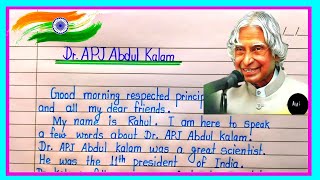 Dr. APJ Abdul Kalam
Good morning respected princip
and all my dear friends.
My name is Rahul. I am here to speak
a few words about Dr. APJ Abdul Kalam.
Dr. APJ Abdul kalam was a great scientist.
He was the 11th president of India.